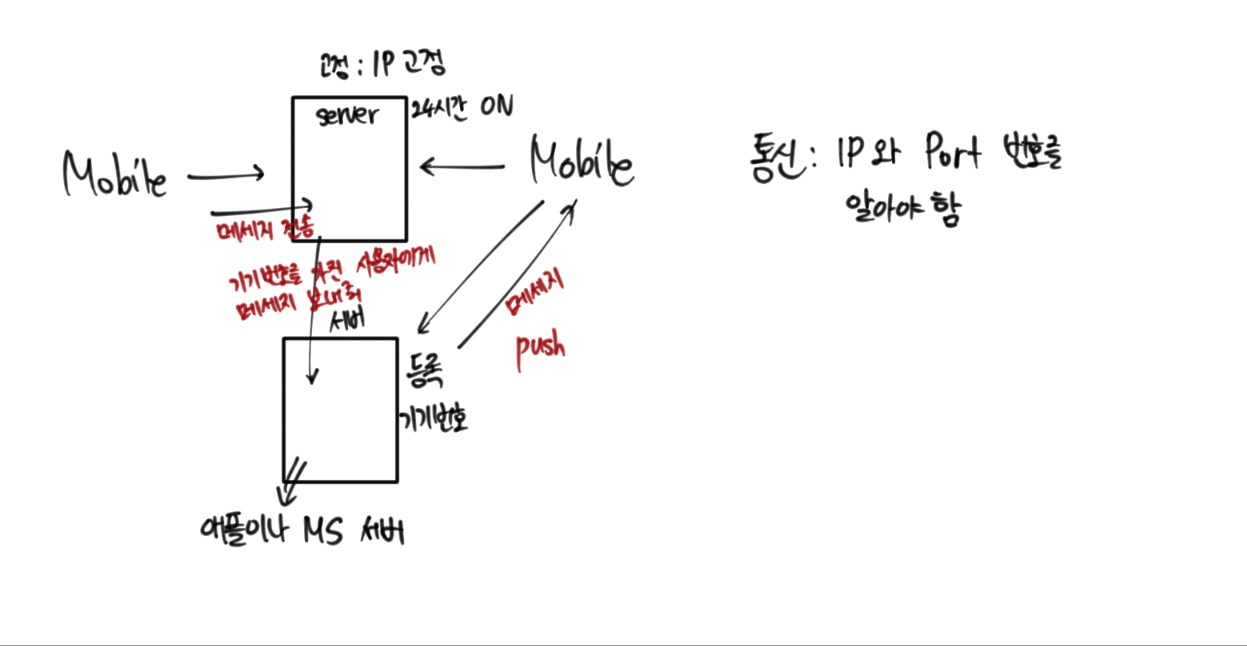 고정 : IP 고정
server
24시간 ON
Mobile
Mobile
통신 : IP 와 Port 번호를
알아야 함
메세지 전송
기기번호를 가진 사용자에게
메세지 보내줘
서버
메세지
push
등록
기기번호
애플이나 MS 서버